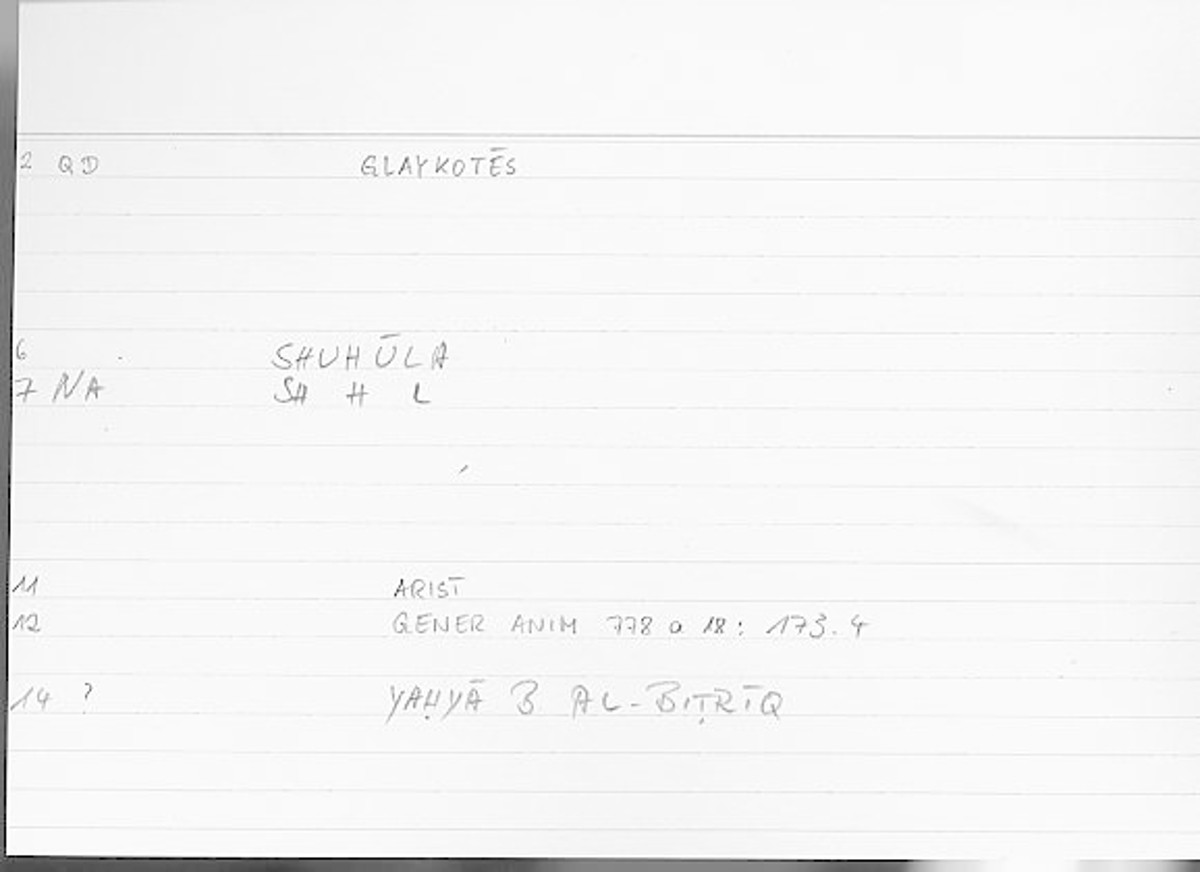 2 QD GLAYKOTĒS
6 SHUHŪLA
7 NA SH H L
11 ARIST
12 GENER ANIM 778 a 18: 173.4
14 ? YAḤYĀ B AL-BIṬRĪQ